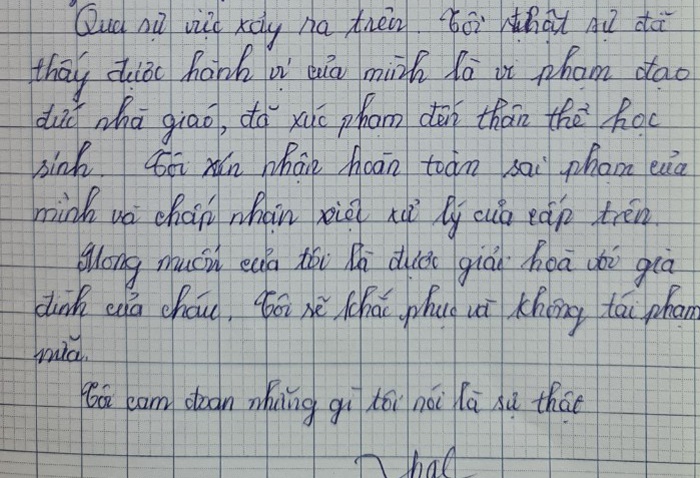 Qua sự việc xảy ra trên. Tôi thật sự đã
thấy được hành vi của mình là vi phạm đạo
đức nhà giáo, đã xúc phạm đến thân thể học
sinh. Tôi xin nhận hoàn toàn sai phạm của
mình và chấp nhận việc xử lý của cấp trên.
Mong muốn của tôi là được giải hoà với gia
đình của cháu. Tôi sẽ khắc phục và không tái phạm
nữa.
Tôi cam đoan những gì tôi nói là sự thật